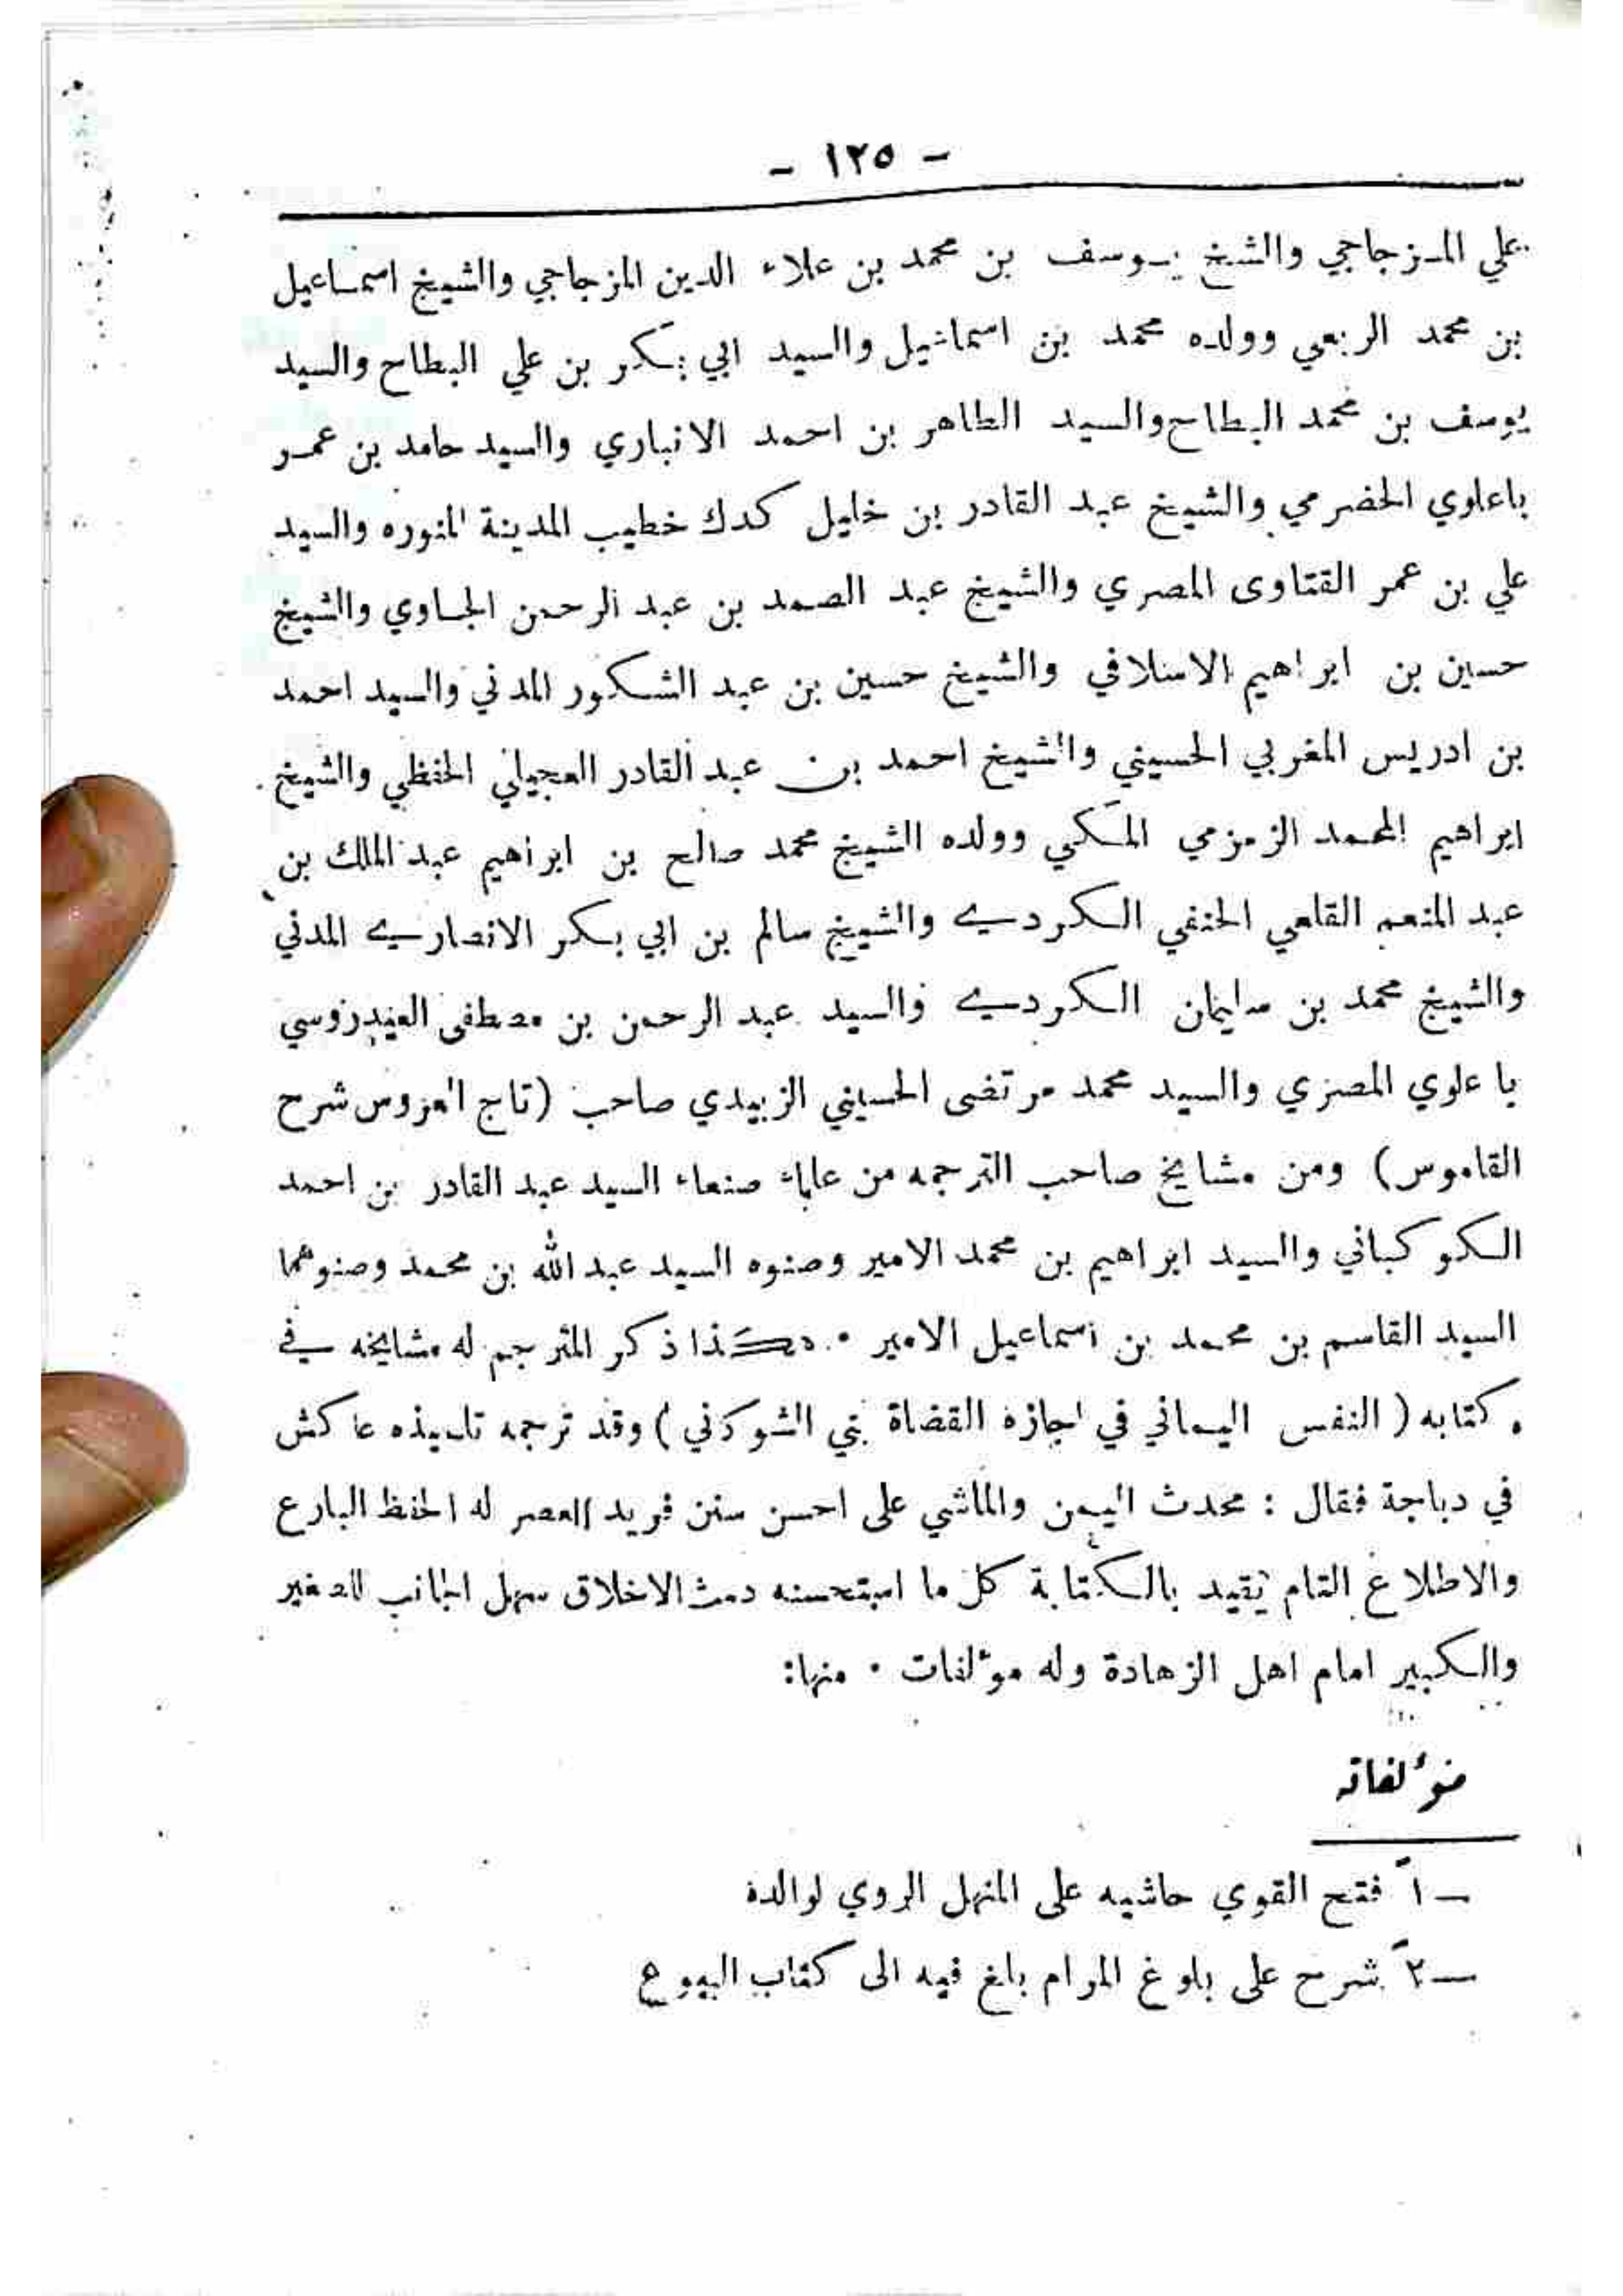 - ١٢٥ -
علي المزجاجي والشيخ يوسف بن محمد بن علاء الدين المزجاجي والشيخ اسماعيل
بن محمد الربعي وولده محمد بن اسماعيل والسيد ابي بكر بن علي البطاح والسيد
يوسف بن محمد البطاح والسيد الطاهر بن احمد الانباري والسيد حامد بن عمر
باعلوي الحضرمي والشيخ عبد القادر بن خليل كدك خطيب المدينة المنوره والسيد
علي بن عمر القتاوى المصري والشيخ عبد الصمد بن عبد الرحمن الجاوي والشيخ
حسين بن ابراهيم الاسلافي والشيخ حسين بن عبد الشكور المدني والسيد احمد
بن ادريس المغربي الحسيني والشيخ احمد بن عبد القادر العجيلي الحفظي والشيخ
ابراهيم المحمد الزمزمي المكي وولده الشيخ محمد صالح بن ابراهيم عبد الملك بن
عبد المنعم القلعي الحنفي الكردي والشيخ سالم بن ابي بكر الانصاري المدني
والشيخ محمد بن سليمان الكردي والسيد عبد الرحمن بن مصطفى العيدروسي
با علوي المصري والسيد محمد مرتضى الحسيني الزبيدي صاحب (تاج العروس شرح
القاموس) ومن مشايخ صاحب الترجمه من علماء صنعاء السيد عبد القادر بن احمد
الكوكباني والسيد ابراهيم بن محمد الامير وصنوه السيد عبد الله بن محمد وصنوهما
السيد القاسم بن محمد بن اسماعيل الامير . هكذا ذكر المترجم له مشايخه في
كتابه ( النفس اليماني في اجازه القضاة بني الشوكني ) وقد ترجمه تلميذه عاكش
في دباجة فقال : محدث اليمن والماشي على احسن سنن فريد العصر له الحفظ البارع
والاطلاع التام يقيد بالكتابة كل ما استحسنه دمث الاخلاق سهل الجانب للصغير
والكبير امام اهل الزهادة وله مؤلفات . منها:
مؤلفاته
—١ً فتح القوي حاشيه على المنهل الروي لوالده
—٢ً شرح على بلوغ المرام بلغ فيه الى كتاب البيوع